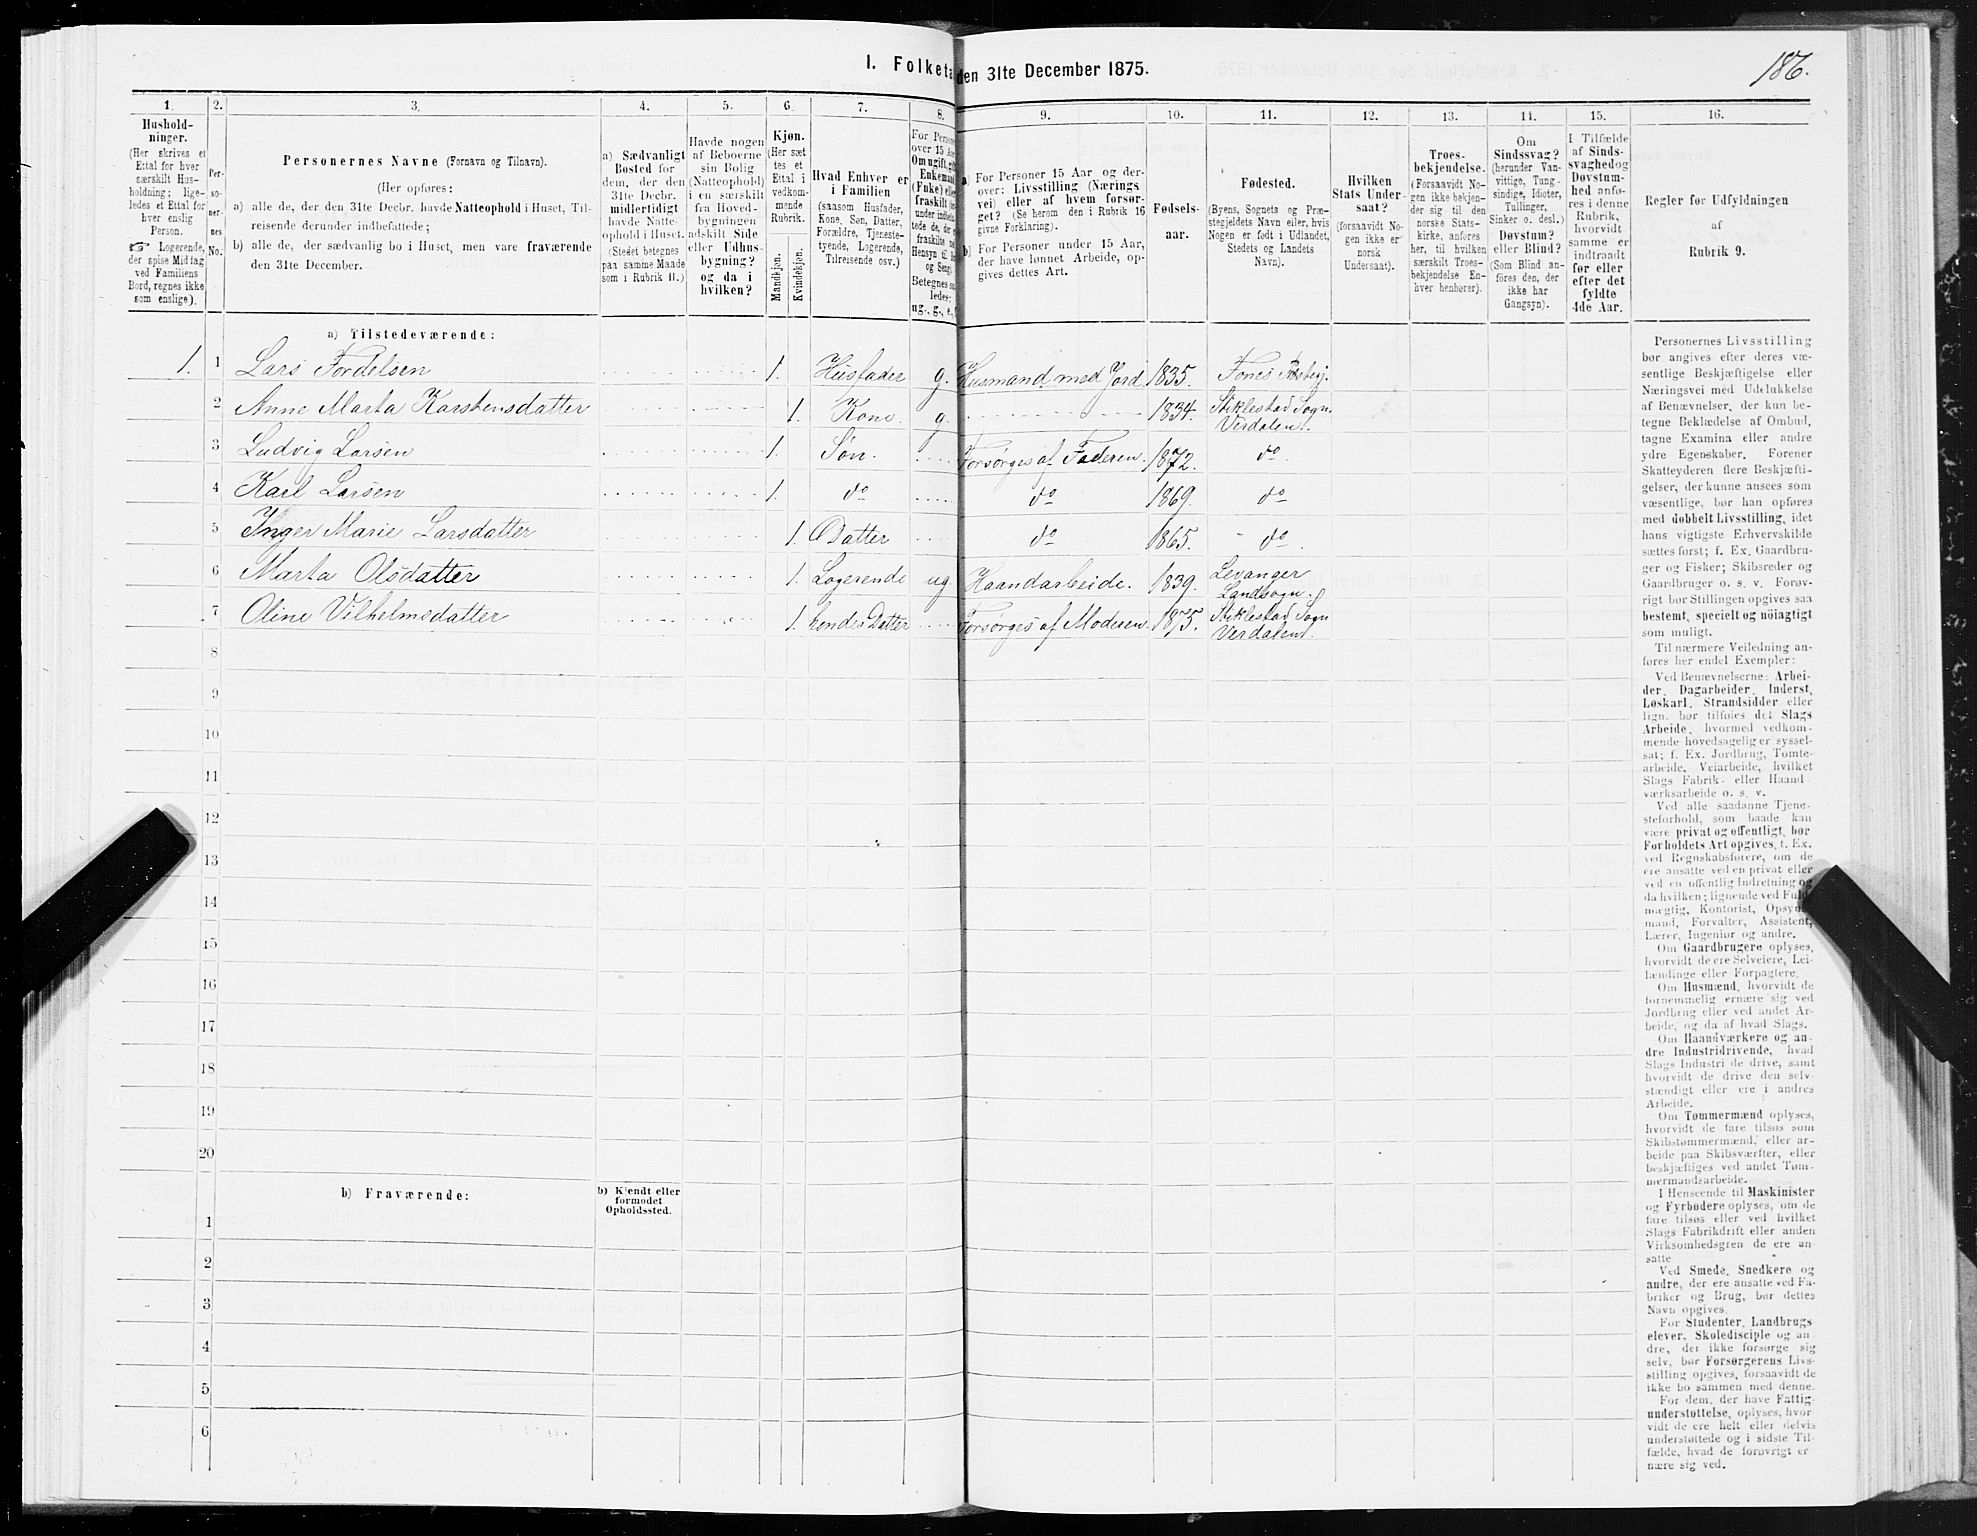 186.
I. Folketa
den 31te December 1875.
1. 2. 3. 4. 5. 6. 7. 8. 9. 10. 11. 12. 13. 14. 15. 16.
Hushold-
ninger.
(Her skrives et
Ettal for hver
særskilt Hus-
holdning; lige-
ledes et Ettal for
hver enslig
Person.
☞ Logerende,
der spise Middag
ved Familiens
Bord, regnes ikke
som enslige).
Per-
so-
ner-
nes
No.
Personernes Navne (Fornavn og Tilnavn).
(Her opføres:
a) alle de, der den 31te Decbr. havde Natteophold i Huset, Til-
reisende derunder indbefattede;
b) alle de, der sædvanlig bo i Huset, men vare fraværende
den 31te December.
a) Sædvanligt
Bosted for
dem, der den
31te Decbr.
midlertidigt
havde Natte-
ophold i Huset.
(Stedet betegnes
paa samme Maade
som i Rubrik 11.)
Havde nogen
af Beboerne
sin Bolig
(Natteophold)
i en særskilt
fra Hoved-
bygningen
adskilt Side
eller Udhus-
bygning?
og da i
hvilken?
Kjøn.
(Her sæt
tes et
Ettal i
vedkom-
mende
Rubrik.
Mandkjøn.
Kvindekjøn.
Hvad Enhver er
i Familien
(saasom Husfader,
Kone, Søn, Datter,
Forældre, Tjeneste-
tyende, Logerende,
Tilreisende osv.)
For Person
over 15 Aar
Om ugift, gift
Enkemand
(Enke) elle
fraskilt
under indbefa
tede de, der
fraskilte m
Hensyn til B
og Seng
Betegnes sa
ledes:
ug., g., e., f
a) For Personer 15 Aar og der-
over: Livsstilling (Nærings
vei) eller af hvem forsør-
get? (Se herom den i Rubrik 16
givne Forklaring).
b) For Personer under 15 Aar,
der have lønnet Arbeide, op-
gives dettes Art.
Fødsels-
aar.
Fødested.
(Byens, Sognets og Præ-
stegjeldets Navn eller, hvis
Nogen er født i Udlandet,
Stedets og Landets
Navn).
Hvilken
Stats Under-
saat?
(forsaavidt No-
gen ikke er
norsk
Undersaat).
Troes-
bekjendelse.
(Forsaavidt No-
gen ikke bekjen-
der sig til den
norske Stats-
kirke, anføres
her, til hvilken
særskilt Troes-
bekjendelse En-
hver henhører).
Om
Sindssvag?
(herunder Van-
vittige, Tung-
sindige, Idioter,
Tullinger,
Sinker o. desl.)
Døvstum?
eller Blind?
(Som Blind an-
føres den, der
ikke har
Gangsyn).
I Tilfælde
af Sinds-
svaghed og
Døvstum-
hed anfø-
res i denne
Rubrik,
hvorvidt
samme er
indtraadt
før eller
efter det
fyldte
4de Aar.
Regler før Udfyldningen
af
Rubrik 9.
a) Tilstedeværende:
1. 1 Lars Fordelsen 1. Husfader g. Husmand med Jord 1835. Fones
2 Anne Marta Karstensdatter 1. Kone. g. 1834. Stiklestad Sogn.
Verdalen.
3 Ludvig Larsen 1. Søn. Forsørges af Faderen. 1872. do.
4 Karl Larsen 1. do do 1869. do
5 Inger Marie Larsdatter 1. Datter do 1865. do.
6 Marta Olsdatter 1. Logerende ug Haandarbeide. 1839. Levanger
Landsogn.
7 Oline Vilhelmsdatter 1. hendes Datter Forsørges af Moderen. 1875. Stiklestad Sogn
Verdalen.
8
9
10
11
12
13
14
15
16
17
18
19
20
b) Fraværende:
b) Kjendt eller
formodet
Opholdssted.
1
2
3
4
5
6
Personernes Livsstilling
bør angives efter deres væ-
sentlige Beskjæftigelse eller
Næringsvei med Udelukkelse
af Benævnelser, der kun be-
tegne Beklædelse af Ombud,
tagne Examina eller andre
ydre Egenskaber. Forener
Skatteyderen flere Beskjæfti-
gelser, der kunne ansees som
væsentlige, bør han opføres
med dobbelt Livsstilling, idet
hans vigtigste Erhvervskilde
sættes først; f. Ex. Gaardbru-
ger og Fisker; Skibsreder og
Gaardbruger o. s. v. Forøv-
rigt bør Stillingen opgives saa
bestemt, specielt og nøiagtigt
som muligt.
Til nærmere Veiledning an-
føres her endel Exempler:
Ved Benævnelserne: Arbei-
der, Dagarbeider, Inderst,
Løskarl, Strandsidder eller
lign. bør tilføies det Slags
Arbeide, hvormed vedkom-
mende hovedsagelig er syssel-
sat; f. Ex. Jordbrug, Tomte-
arbeide, Veiarbeide, hvilket
Slags Fabrik- eller Haand
værksarbeide o. s. v.
Ved alle saadanne Tjene-
steforhold, som baade kan
være privat og offentligt, bør
Forholdets Art opgives, f. Ex.
ved Regnskabsførere, om de
ere ansatte ved en privat eller
ved en offentlig Indretning og
da hvilken; lignende ved Fuld-
mægtig, Kontorist, Opsyns
mand, Forvalter, Assistent,
Lærer, Ingeniør og andre.
Om Gaardbrugere oplyses,
hvorvidt de ere Selveiere, Lei-
lændinge eller Forpagtere.
Om Husmænd, hvorvidt de
fornemmelig ernære sig ved
Jordbrug eller ved andet Ar-
beide, og da af hvad Slags.
Om Haandværkere og an-
dre Industridrivende, hvad
Slags Industri de drive, samt
hvorvidt de drive den selv-
stændigt eller ere i andres
Arbeide.
Om Tømmermænd oplyses,
hvorvidt de fare tilsøs som
Skibstømmermænd, eller ar-
beide paa Skibsværfter, eller
beskjæftiges ved andet Tøm-
mermandsarbeide.
I Henseende til Maskinister
og Fyrbødere oplyses, om de
fare tilsøs eller ved hvilket
Slags Fabrikdrift eller anden
Virksomhedsgren de ere an-
satte
Ved Smede, Snedkere og
andre, der ere ansatte ved Fa-
briker og Brug, bør dettes
Navn opgives.
For Studenter, Landbrugs
elever, Skoledisciple og an
dre, der ikke forsørge sig
selv, bør Forsørgerens Livs-
stilling opgives, forsaavidt de
ikke bo sammen med denne.
For dem, der have Fattig-
understøttelse, oplyses, hvor
vidt de ere helt eller delvis
understøttede og i sidste Til-
fælde, hvad de forøvrigt er
nære sig ved.